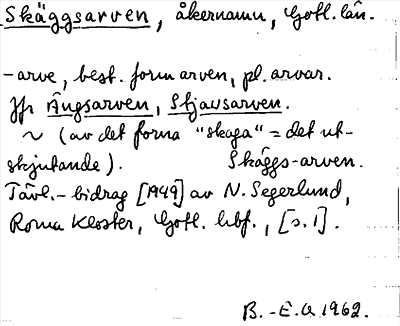 Skäggsarven, åkernamn, Gotl. län.
-arve, best. form arven, pl. arvar.
Jfr Ängsarven, Stjavsarven.
~ (av det forna "skaga" = det ut-
skjutande). Skäggs-arven.
Tävl.-bidrag [1949] av N. Segerlund,
Roma Kloster, Gotl. hbf., [s. 1].
B.-E.O. 1962.